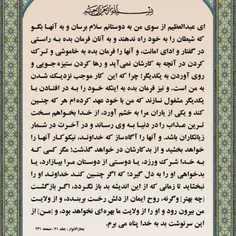 بسم الله الرحمن الرحیم
ای عبدالعظیم از سوی من به دوستانم سلام برسان و به آنها بگو
که شیطان را به خود راه ندهند و به آنان فرمان بده به راستی
در گفتار و ادای امانت، و آنها را فرمان بده به خاموشی و ترک
کردن در آنچه به کارشان نمی‌آید و رها کردن ستیزه‌جویی و
روی آوردن به یکدیگر؛ چرا که این کار موجب نزدیک شدن
به من است. و نیز فرمان بده به اینکه خود را به درافتادن با
یکدیگر مشغول نسازند که من با خود عهد کرده‌ام هر که چنین
کند و یکی از یاران مرا به خشم آورد، از خدا بخواهم سخت
ترین عذاب را در دنیا به وی رساند و در آخرت در شمار
زیانکاران باشد. و آنها را آگاه ساز که خداوند، نیکوکار آنها را
خواهد بخشید و از بدکارشان در خواهد گذشت؛ مگر کسی که
به خدا شرک ورزد، یا دوستی از دوستان مرا بیازارد، یا
بدخواهی او را به دل گیرد؛ که اگر چنین کند خداوند او را
نبخشاید تا زمانی که از این اندیشه بد باز نگردد، اگر بازگشت
[چه بهتر] وگرنه، روح ایمان از دلش رخت بربندد، و از ولایت
من بیرون رود و او را از ولایت ما بهره‌ای نخواهد بود، و [من] از
این سرنوشت بد به خدا پناه می برم.